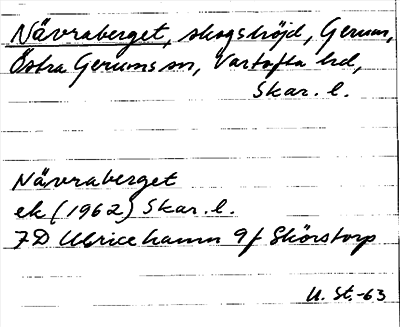 Nävraberget, skogshöjd, Gerum,
Östra Gerums sn, Vartofta hd,
Skar. l.
Nävraberget
ek (1962) Skar. l.
7D Ulricehamn 9f Skörstorp
U. St. -63